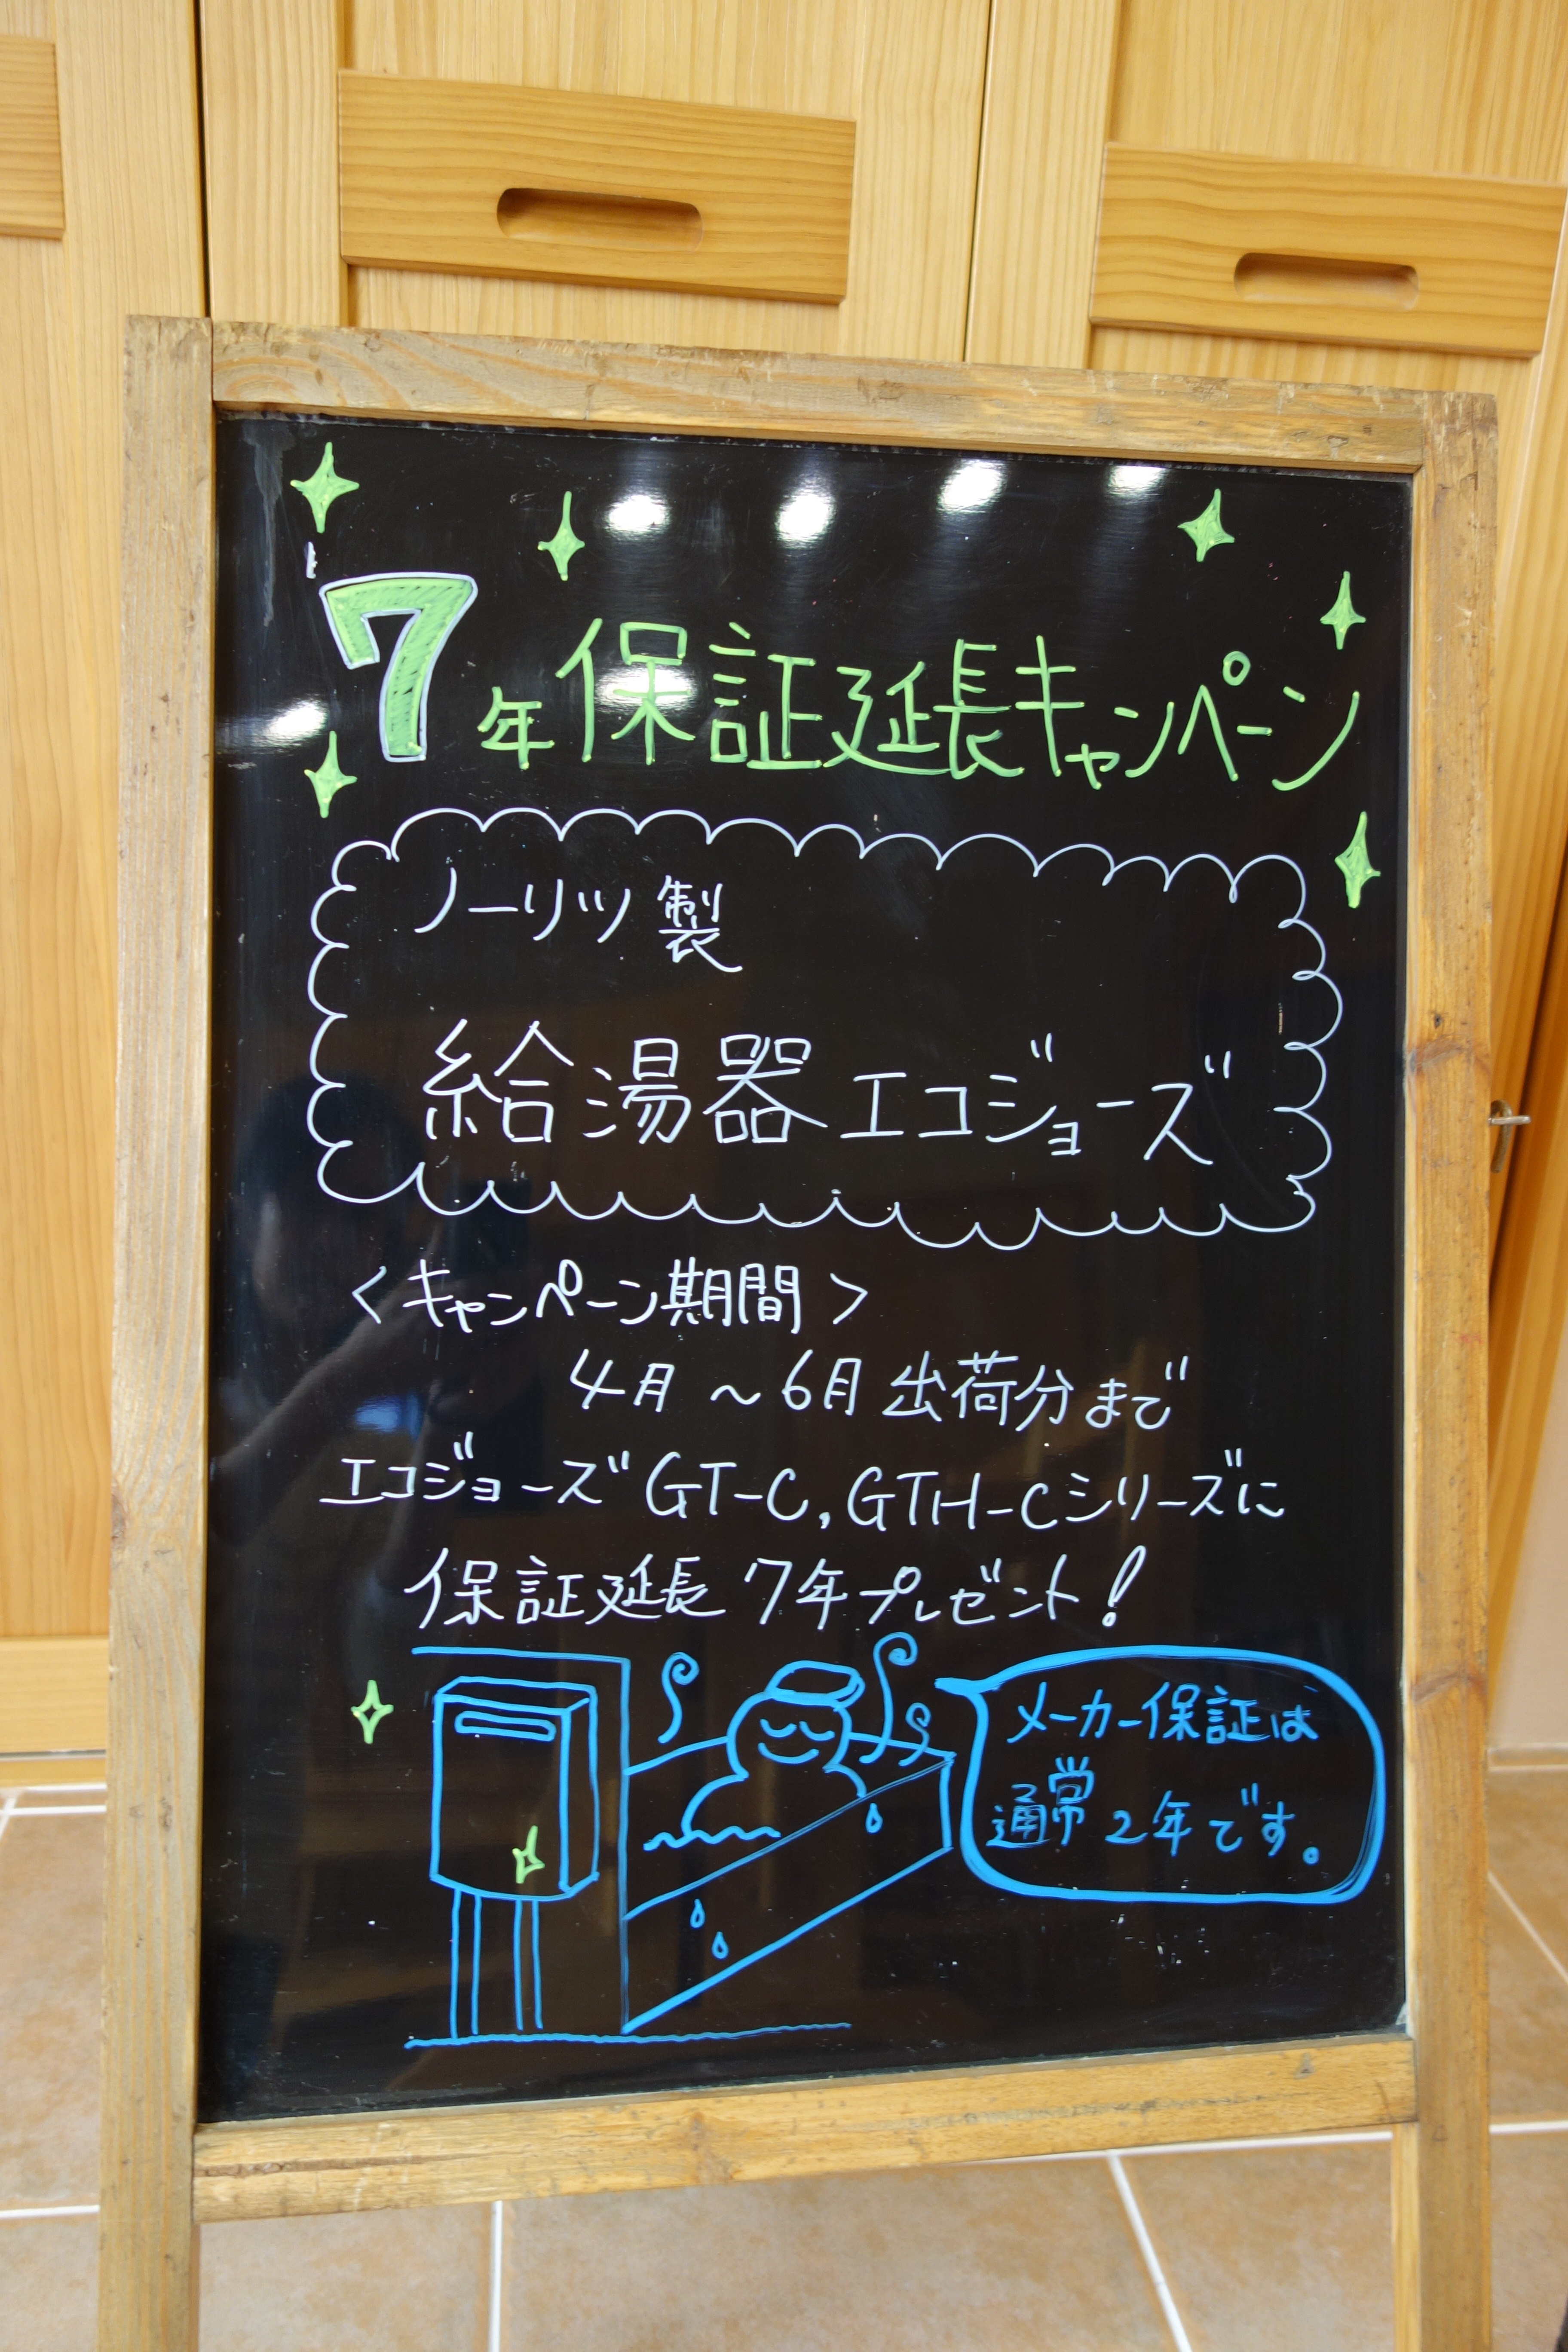 7年保証延長キャンペーン
ノーリツ製
給湯器エコジョーズ
<キャンペーン期間>
4月～6月出荷分まで
エコジョーズGT-C,GTH-Cシリーズに
保証延長7年プレゼント!
メーカー保証は
通常2年です。